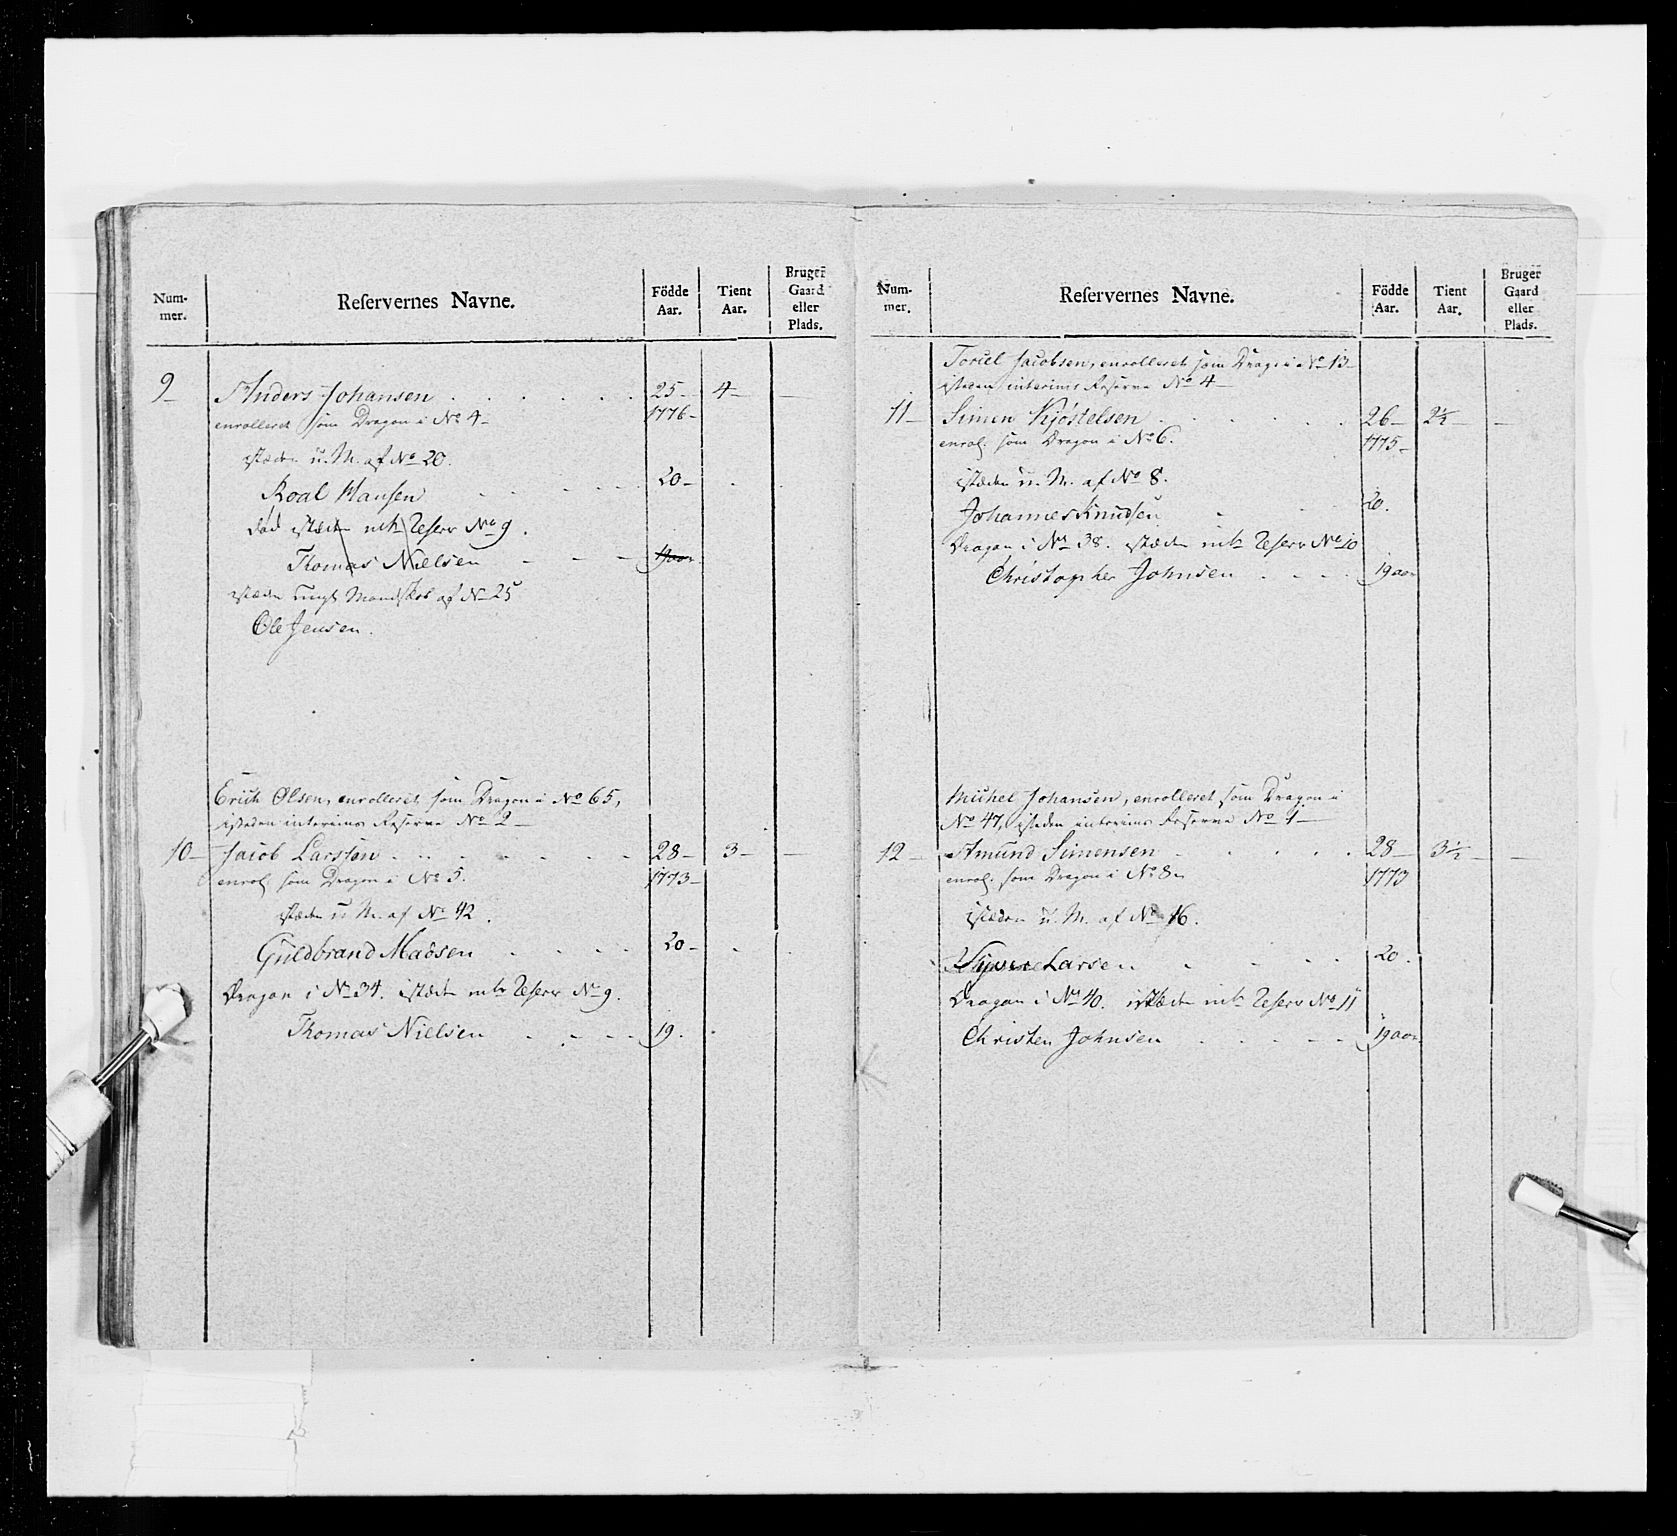 Num-
mer.
Reservernes Navne.
Födde
Aar.
Tient
Aar.
Bruger
Gaard
eller
Plads.
9 Anders Johansen 25 4
enrolleret som Dragon i No 4 1776
istæden u. M. af No 20.
Roal Hansen 20
död istæden Reserv No 9.
Thomas Nielsen 19 aar
istæden ungt Mandskab af No 25
Ole Jensen.
Erich Olsen, enrolleret som Dragon i No 65,
isteden interims Reserve No 2
10 Jacob Larssen 28 3
enrol. som Dragon i No 5. 1773
istæden u. M. af No 42.
Guldbrand Madsen 20
Dragon i No 34. istæden Reserv No 9.
Thomas Nielsen 19.
Num-
mer.
Reservernes Navne.
Födde
Aar.
Tient
Aar.
Bruger
Gaard
eller
Plads.
Toriel Jacobsen, enrolleret som Dragon i No 13
isteden interims Reserve No 4
11 Simen Kjöstelsen 26 2½
enrol. som Dragon i No 6. 1775
istæden u. M. af No 8.
Johannes Knudsen 20.
Dragon i No 38. istæden Reserv No 10
Christopher Johnsen 19 aar
Michel Johansen, enrolleret som Dragon i
No 47, isteden interims Reserve No 1
12 Amund Simensen 28 3½
enrol. som Dragon i No 8 1773
istæden u. M. af No 16.
Larsen 20.
Dragon i No 40. istæden Reserv No 11
Christen Johnsen 19 aar